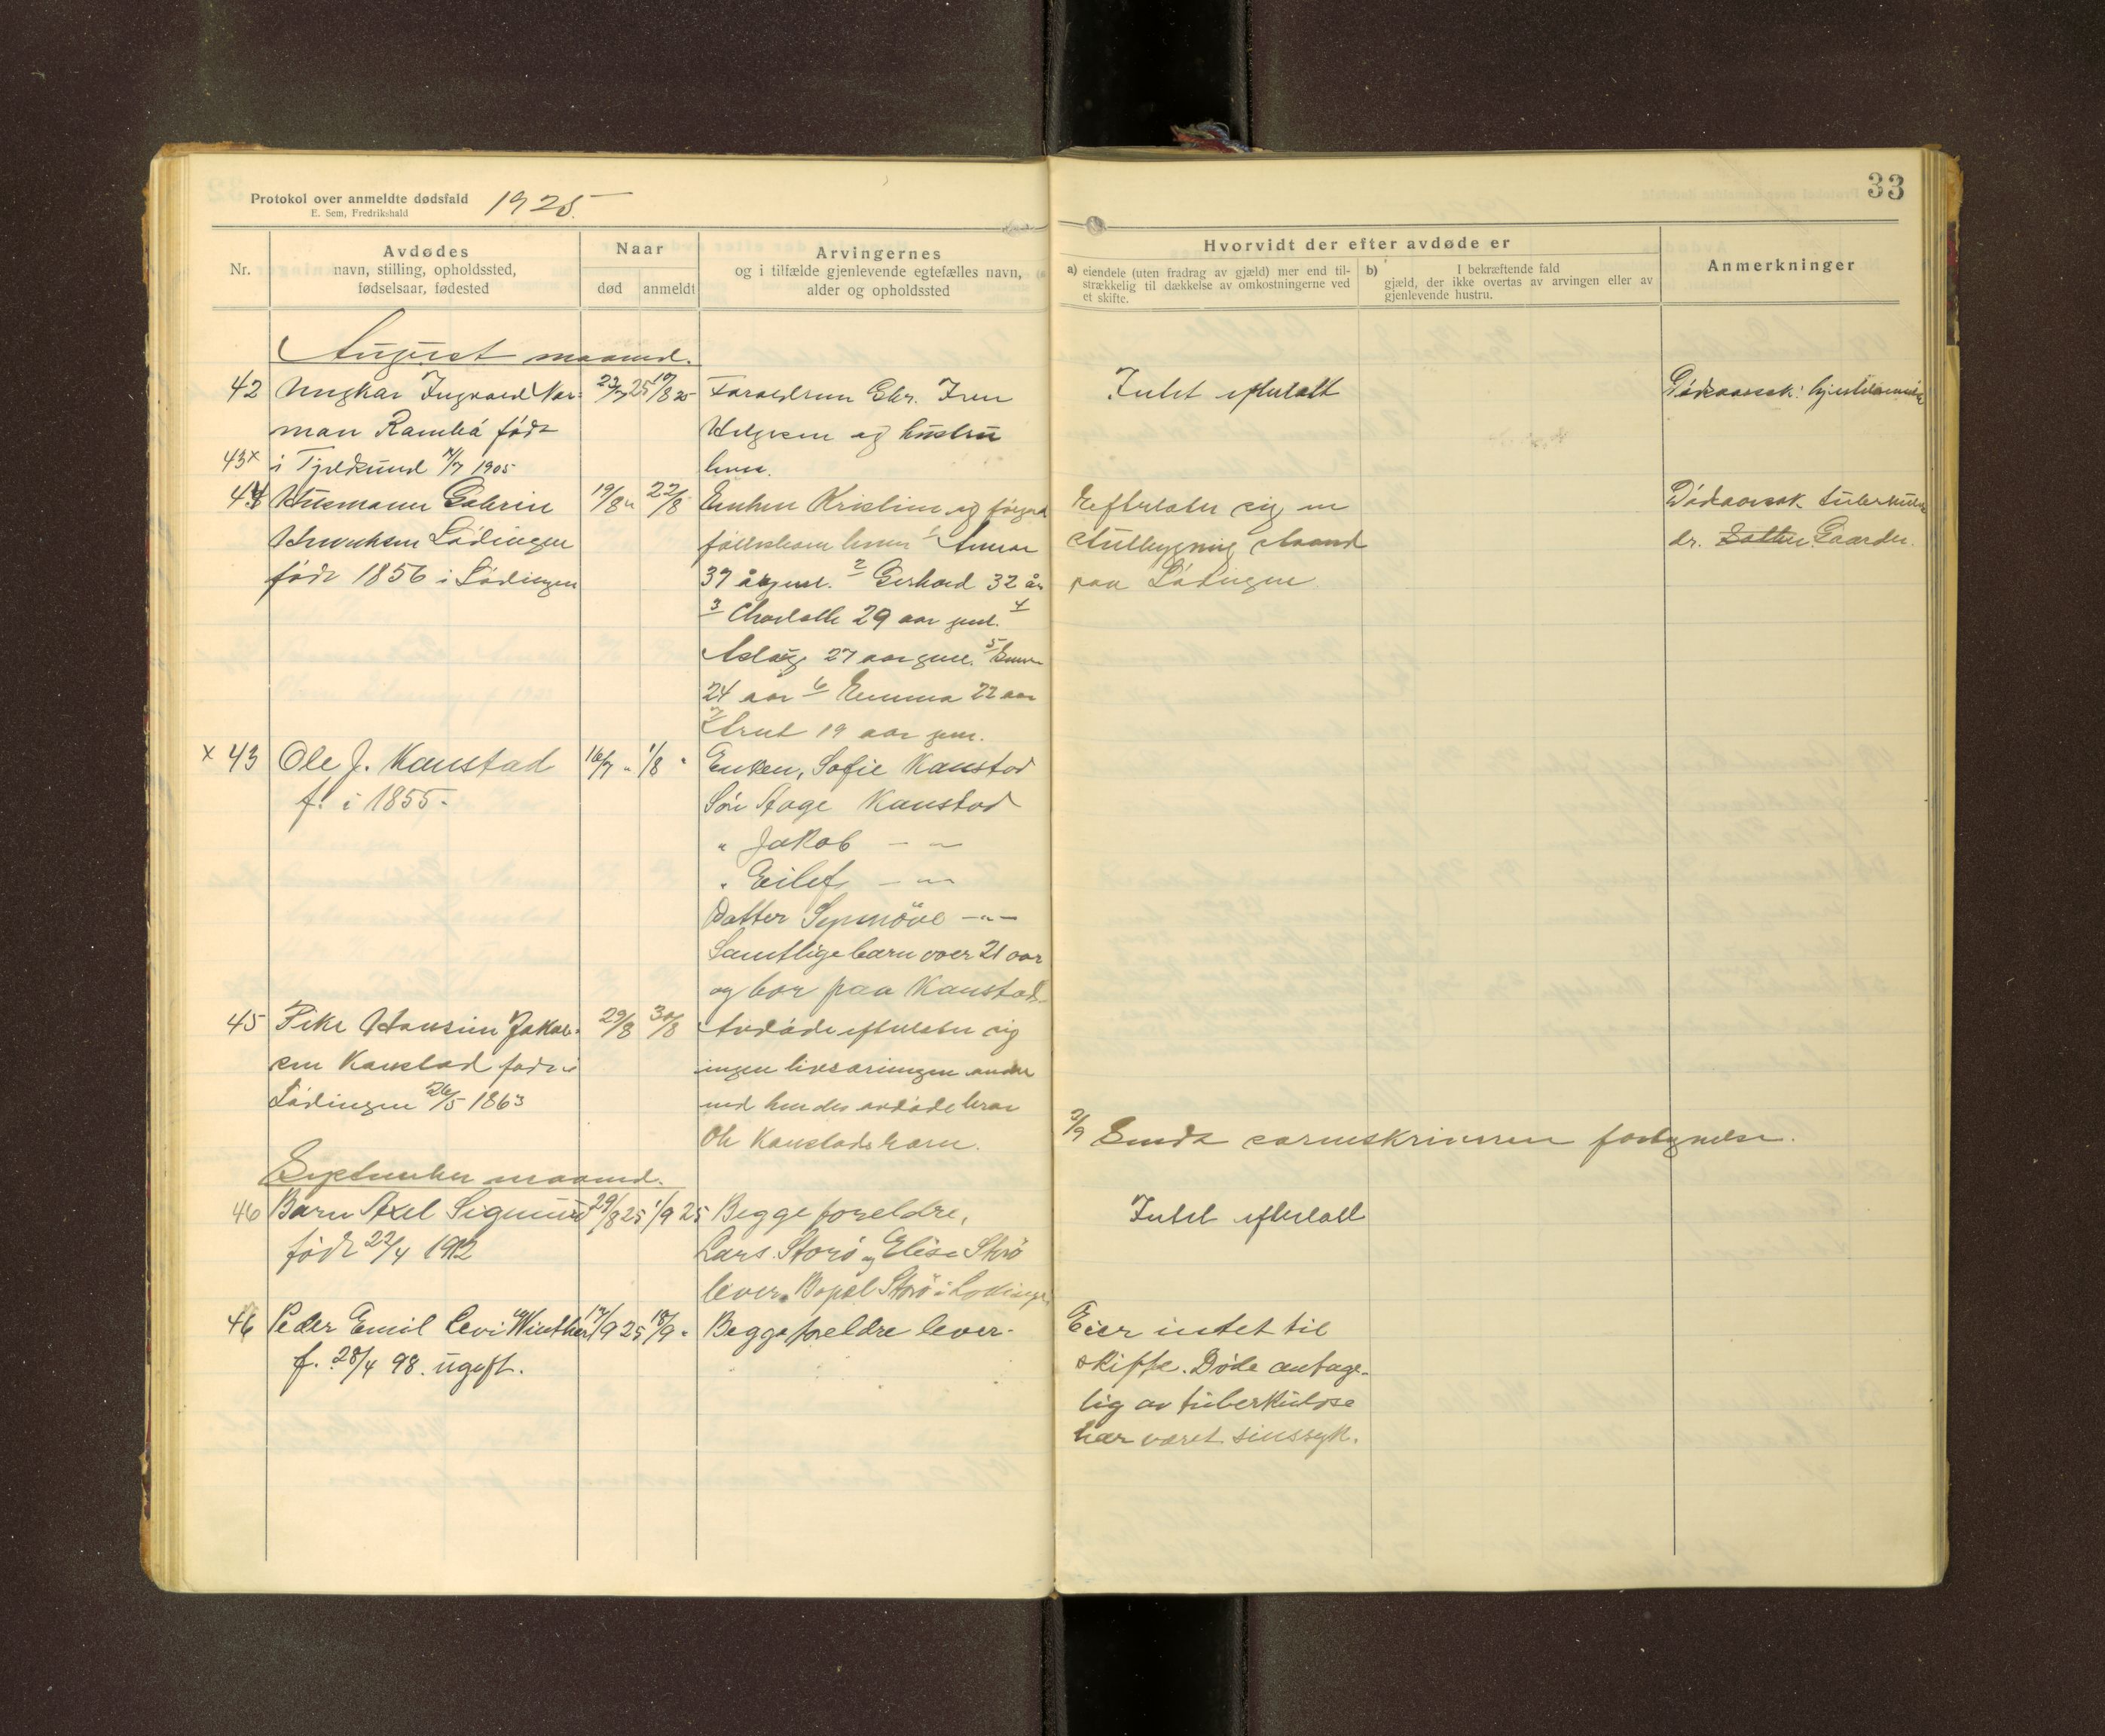 Protokol over anmeldte dødsfald 1925.
E. Sem, Fredrikshald
33
Nr.
Avdødes
navn, stilling, opholdssted,
fødselsaar, fødested
Naar
død
anmeldt
Arvingernes
og i tilfælde gjenlevende egtefælles navn,
alder og opholdssted
Hvorvidt der efter avdøde er
a) eiendele (uten fradrag av gjæld) mer end til-
strækkelig til dækkelse av omkostningerne ved
et skifte.
b) I bekræftende fald
gjæld, der ikke overtas av arvingen eller av
gjenlevende hustru.
Anmerkninger
August maaned.
42 Ungkar Ingvald Nor- 23/7 25 10/8 25 Foreldrene Chr. Iren Intet efterlatt Dødsaarsak:
man Rambå født Helgesen og hustru
43x i Tjeldsund 7/7 1905 lever.
44 Husmann 19/8 " 22/8 Enken Kristine og Efterlater sig en Dødsaarsak tuberkulose
Lødingen fællesbarn 1 Stuebygning dr. Gaarder.
født 1856 i Lødingen 37 år gml. 2 Gerhard 32 år paa Lødingen
3 Charlotte 29 aar gml. 4
Aslaug 27 aar gml. 5
24 aar 6 Emma 22 aar
7 19 aar gml.
x 43 Ole J. Kanstad 16/7 " 1/8 " Enken, Sofie Kanstad
f. i 1855. Søn Aage Kanstad
" Jakob — " —
" Eilef — " —
Datter Synnöve — " —
Samtlige barn over 21 aar
og bor paa Kanstad.
45 Pike Hansine Jakob- 29/8 30/8 Avdøde efterlater sig
sen Kanstad født i ingen livsarvinger andre
Lødingen 26/5 1863 end hendes avdøde bror
Ole Kanstads barn. 2/9 Sendt sorenskriveren
September maaned.
46 Barn Axel Sigmund 29/8 25 1/9 25 Begge foreldre, Intet efterlatt
født 22/4 1912 Lars Storø og Elise Storø
lever. Bopæl Storø i Lødingen
46 Peder Emil Levi Winther 17/9 25 18/9 " Begge foreldre lever. Eier intet til
f. 28/4 98. ugift. skifte. Døde antage-
lig av tuberkulose
har været sinssyk.